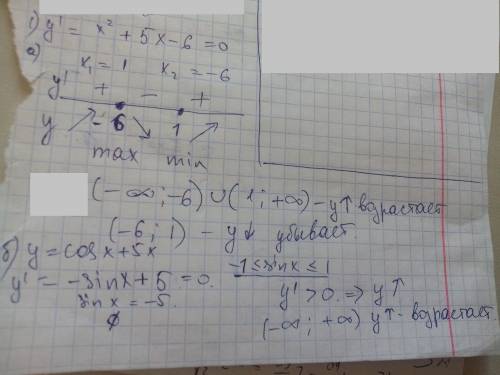 1) y' = x² + 5x - 6 = 0
а) x₁ = 1 x₂ = -6
y' + - +
y -6 1
max min
(-∞; -6) ∪ (1; +∞) - y↑ возрастает
(-6; 1) - y↓ убывает
б) y = cosx + 5x
y' = -sinx + 5 = 0. -1 ≤ sinx ≤ 1
sinx = -5. y' > 0. => y↑
∅ (-∞; +∞) y↑ - возрастает